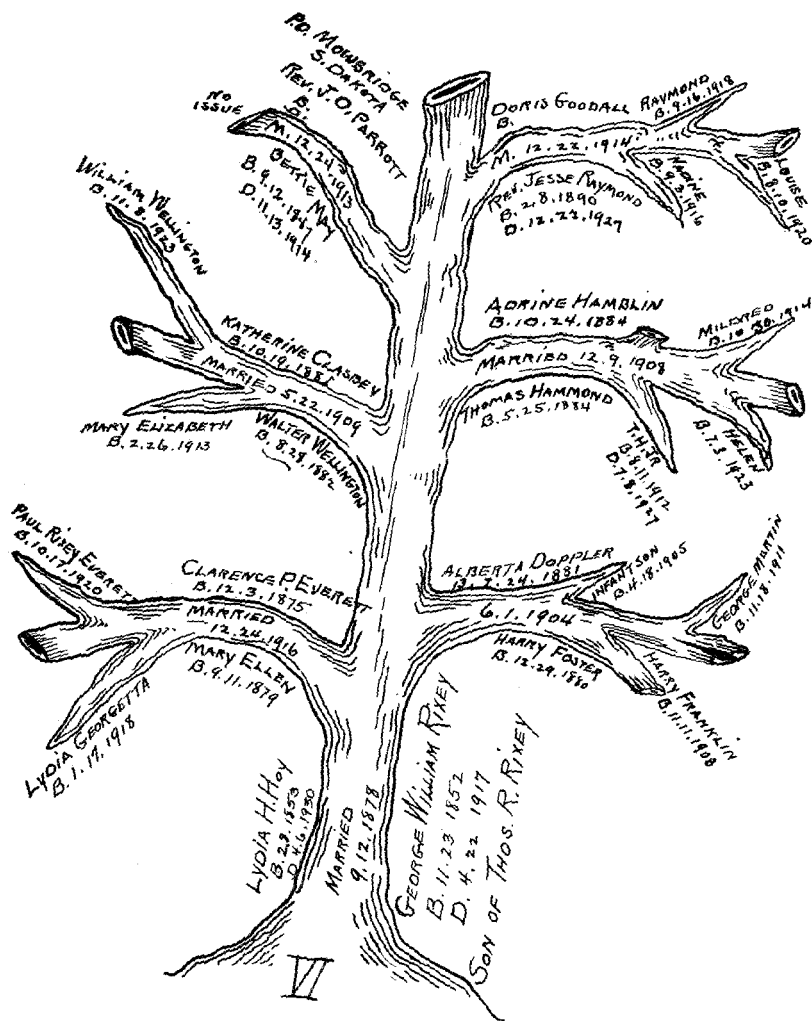 P.O. MOWBRIDGE
S. DAKOTA
REV. J. O. PARROTT
B.
D.
M. 12.24.1913
BETTIE MAY
B. 9.12.1847
D. 11.13.1914
NO
ISSUE
DORIS GOODALL
B.
M. 12.22.1914
REV. JESSE RAYMOND
B. 2.8.1890
D. 12.22.1927
RAYMOND
B. 9.16.1918
NADINE
B. 9.3.1916
LOUISE
B. 8.10.1920
WILLIAM WELLINGTON
B. 11.8.1923
KATHERINE CLASBEY
B. 10.19.1881
MARRIED 5.22.1909
WALTER WELLINGTON
B. 8.28.1882
MARY ELIZABETH
B. 2.26.1913
ADRINE HAMBLIN
B. 10.24.1884
MARRIED 12.9.1908
THOMAS HAMMOND
B. 5.25.1884
MILDRED
B. 10.30.1914
T.H. JR
B. 8.11.1912
D. 7.8.1927
HELEN
B. 7.3.1923
PAUL RIXEY EVERETT
B. 10.17.1920
CLARENCE P. EVERETT
B. 12.3.1875
MARRIED
12.24.1916
MARY ELLEN
B. 9.11.1879
LYDIA GEORGETTA
B. 1.17.1918
ALBERTA DOPPLER
B. 7.24.1881
6.1.1904
HARRY FOSTER
B. 12.29.1880
INFANT SON
B. 4.18.1905
GEORGE MARTIN
B. 11.18.1911
HARRY FRANKLIN
B. 11.11.1908
LYDIA H. HOY
B. 2.8.1853
D. 4.6.1930
MARRIED
9.12.1878
GEORGE WILLIAM RIXEY
B. 11.23 1852
D. 4.22 1917
SON OF THOS. R. RIXEY
VI